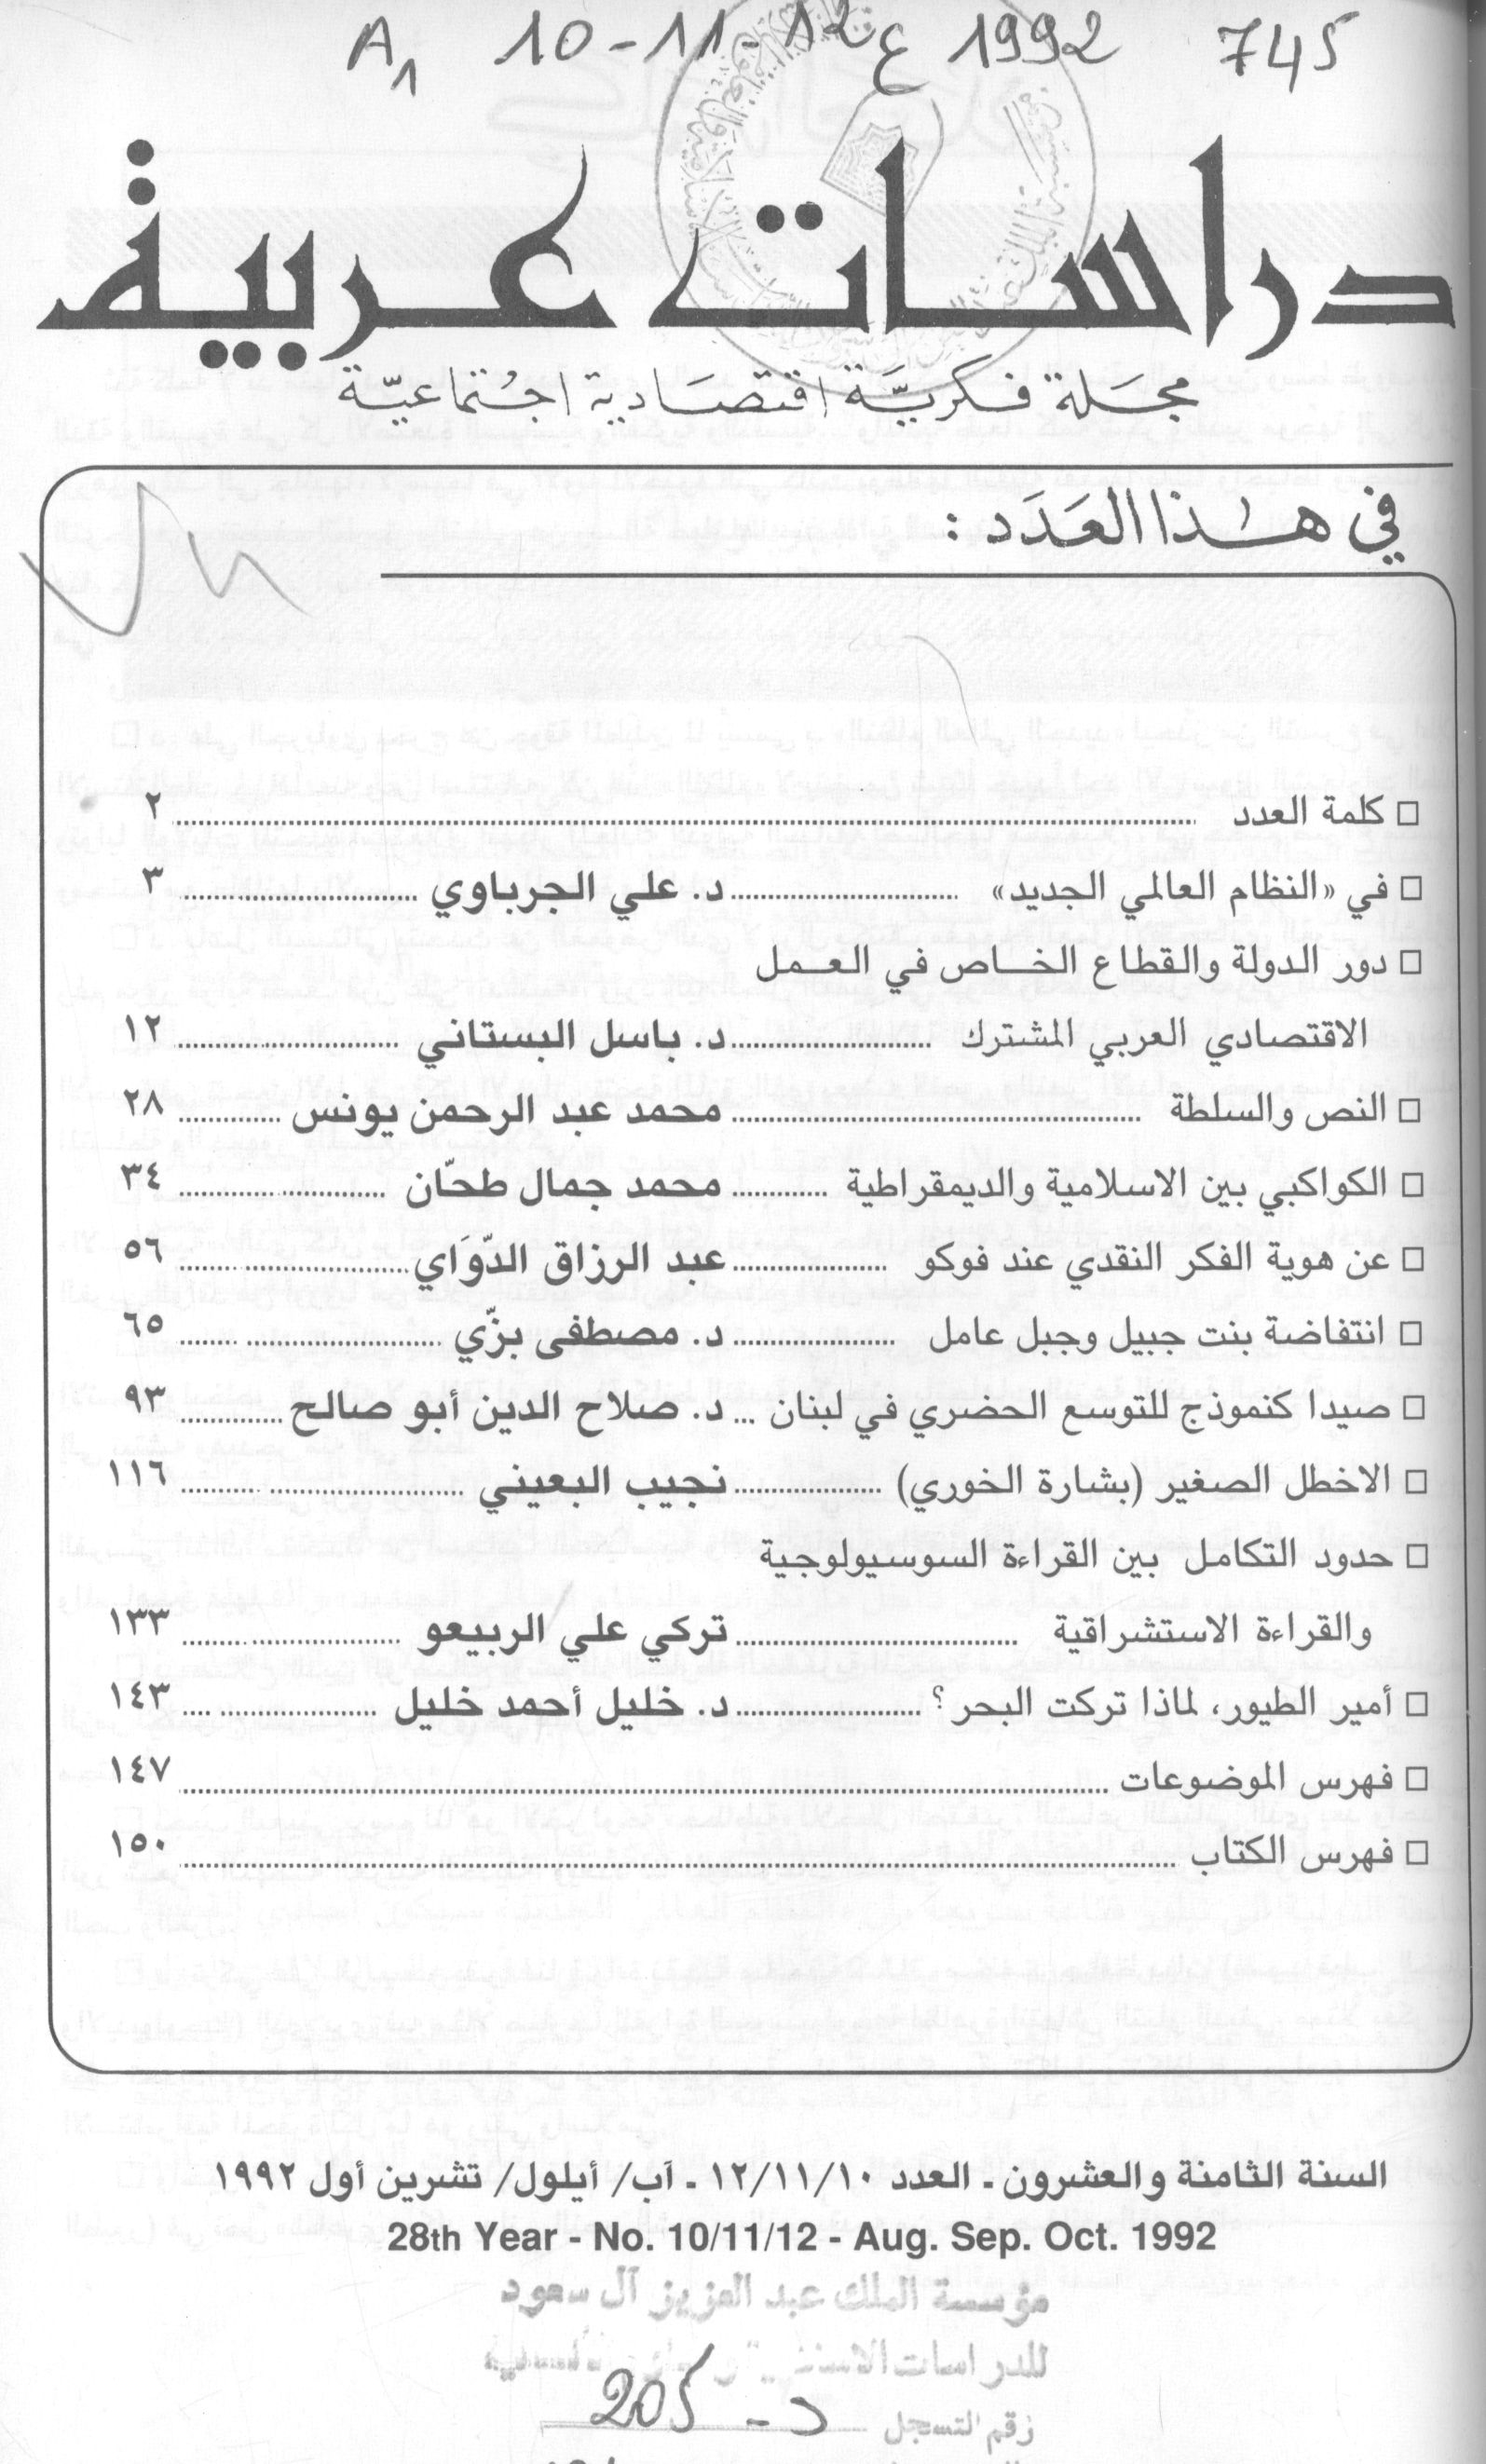 A1 10-11-12 ع 1992 745
دراسات عربية
مجلة فكريَّة اقتصادية اجتماعيّة
في هذا العَدَد :
□ كلمة العدد ........ ٢
□ في «النظام العالمي الجديد» ........ د. علي الجرباوي ........ ٣
□ دور الدولة والقطاع الخاص في العمل
الاقتصادي العربي المشترك ........ د. باسل البستاني ........ ١٢
□ النص والسلطة ........ محمد عبد الرحمن يونس ........ ٢٨
□ الكواكبي بين الاسلامية والديمقراطية ........ محمد جمال طحّان ........ ٣٤
□ عن هوية الفكر النقدي عند فوكو ........ عبد الرزاق الدّوَاي ........ ٥٦
□ انتفاضة بنت جبيل وجبل عامل ........ د. مصطفى بزّي ........ ٦٥
□ صيدا كنموذج للتوسع الحضري في لبنان ... د. صلاح الدين أبو صالح ........ ٩٣
□ الاخطل الصغير (بشارة الخوري) ........ نجيب البعيني ........ ١١٦
□ حدود التكامل بين القراءة السوسيولوجية
والقراءة الاستشراقية ........ تركي علي الربيعو ........ ١٣٣
□ أمير الطيور، لماذا تركت البحر؟ ........ د. خليل أحمد خليل ........ ١٤٣
□ فهرس الموضوعات ........ ١٤٧
□ فهرس الكتاب ........ ١٥٠
السنة الثامنة والعشرون ـ العدد ١٢/١١/١٠ ـ آب/ أيلول/ تشرين أول ١٩٩٢
28th Year - No. 10/11/12 - Aug. Sep. Oct. 1992
مؤسسة الملك عبد العزيز آل سعود
للدراسات
رقم التسجل د - 205